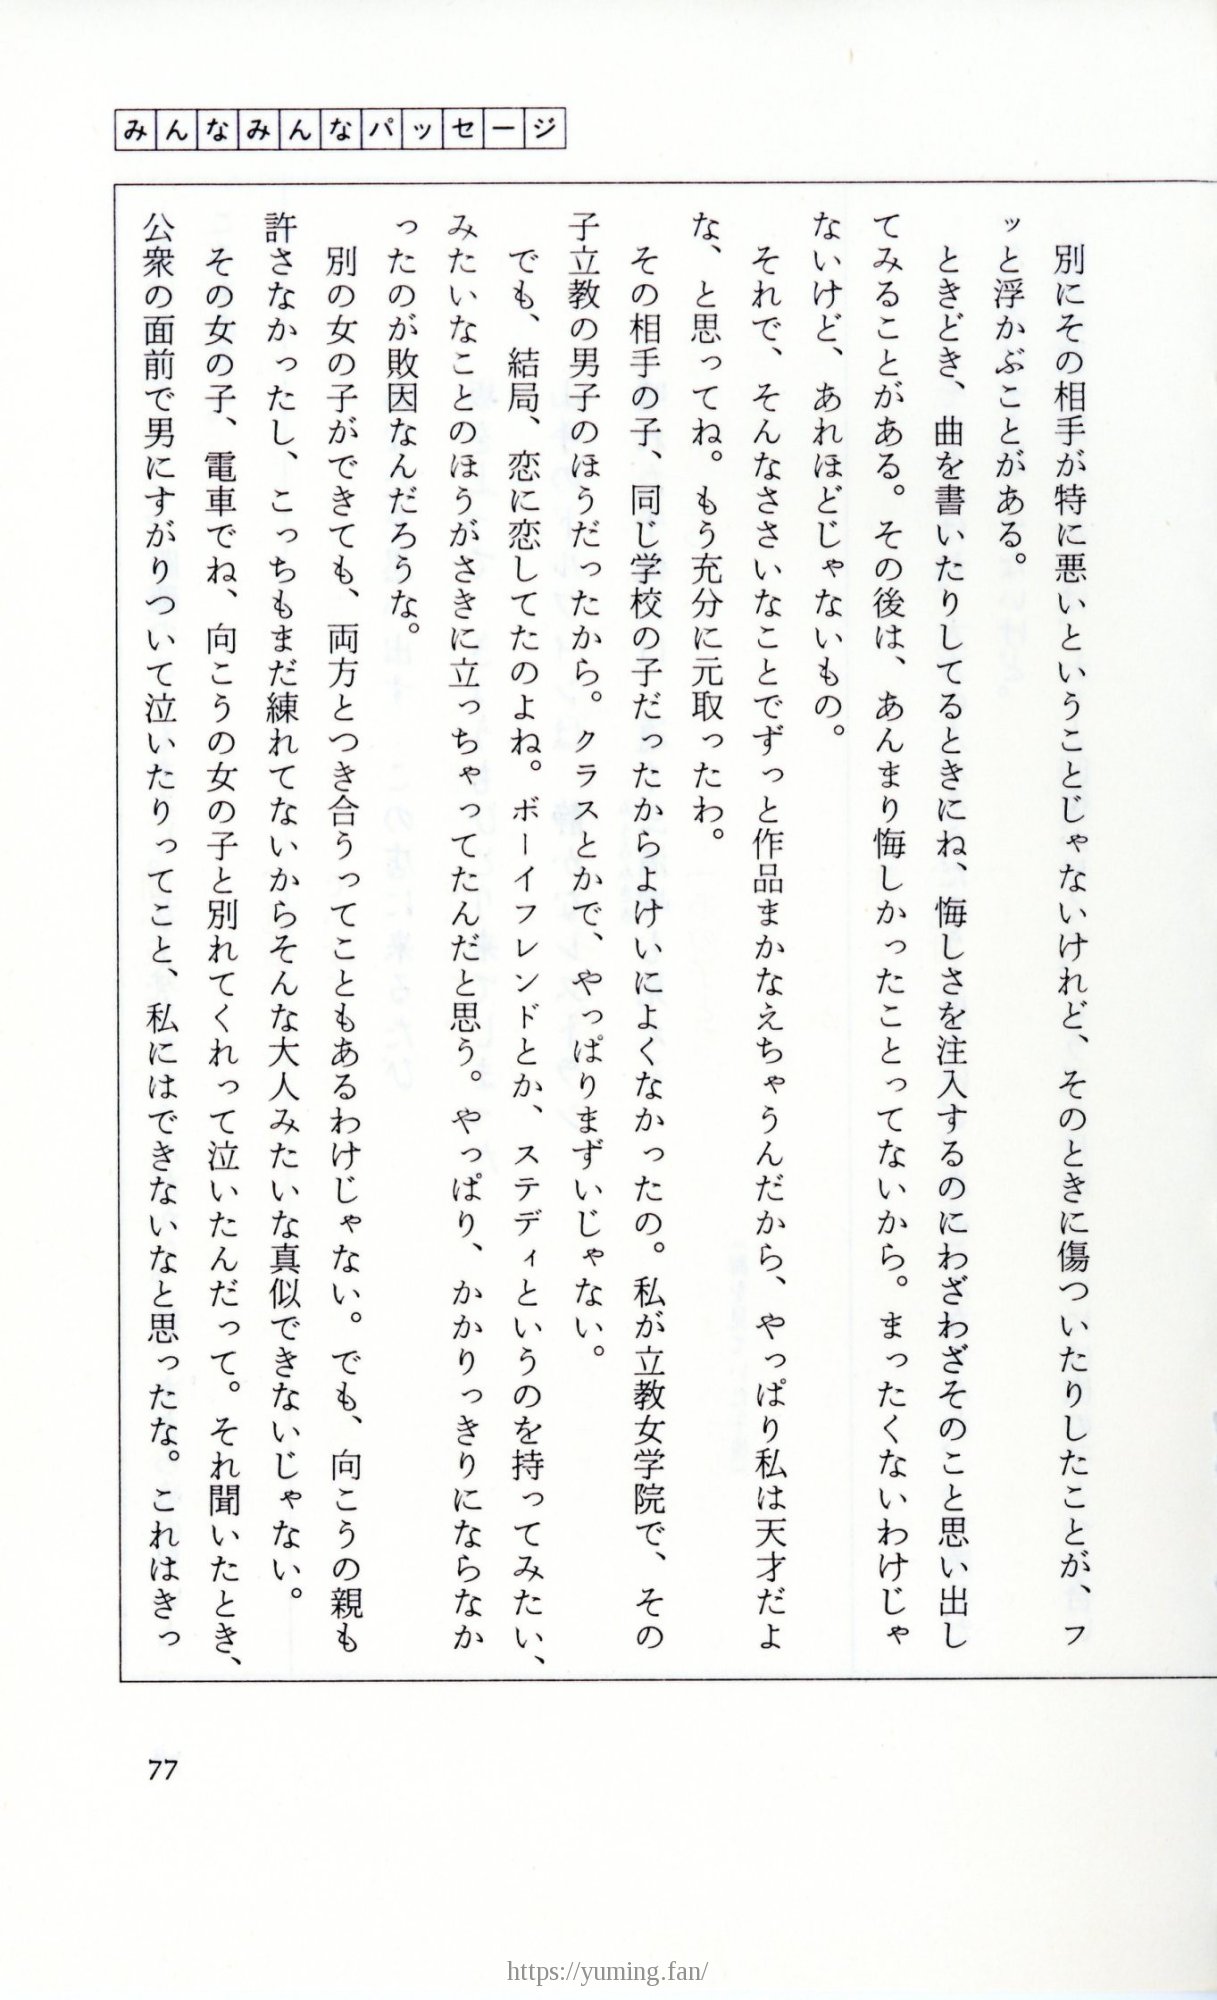 みんなみんなパッセージ
別にその相手が特に悪いということじゃないけれど、そのときに傷ついたりしたことが、フ
ッと浮かぶことがある。
ときどき、曲を書いたりしてるときにね、悔しさを注入するのにわざわざそのこと思い出し
てみることがある。その後は、あんまり悔しかったことってないから。まったくないわけじゃ
ないけど、あれほどじゃないもの。
それで、そんなささいなことでずっと作品まかなえちゃうんだから、やっぱり私は天才だよ
な、と思ってね。もう充分に元取ったわ。
その相手の子、同じ学校の子だったからよけいによくなかったの。私が立教女学院で、その
子立教の男子のほうだったから。クラスとかで、やっぱりまずいじゃない。
でも、結局、恋に恋してたのよね。ボーイフレンドとか、ステディというのを持ってみたい、
みたいなことのほうがさきに立っちゃってたんだと思う。やっぱり、かかりっきりにならなか
ったのが敗因なんだろうな。
別の女の子ができても、両方とつき合うってこともあるわけじゃない。でも、向こうの親も
許さなかったし、こっちもまだ練れてないからそんな大人みたいな真似できないじゃない。
その女の子、電車でね、向こうの女の子と別れてくれって泣いたんだって。それ聞いたとき、
公衆の面前で男にすがりついて泣いたりってこと、私にはできないなと思ったな。これはきっ
77
https://yuming.fan/